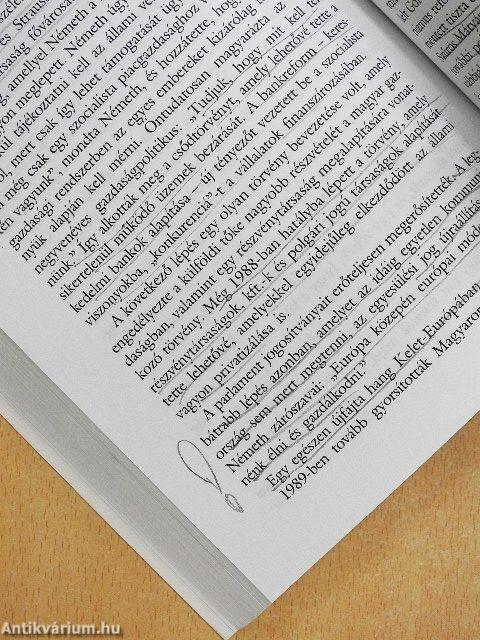 Strauss
ság fővárosá
amelyel Németh a
gyon meglepett. Németh úgy
ül tájékoztatni kell az állami ve
ól, mert csak így lehet támogatását úgy
még csak egy szocialista piacgazdasághoz v
én vagyunk", mondta Németh, és hozzátette, hogy
gazdasági rendszerben az egyes embereket kizárólag
nyük alapján kell mérni. Öntudatosan magyarázta az
negyvenéves gazdaságpolitikus: „Tudjuk, hogy mit kell ten-
nünk." Így alkották meg a csődtörvényt, amely lehetővé tette a
sikertelenül működő üzemek bezárását. A bankreform – keres-
kedelmi bankok alapítása – új tényezőt vezetett be a szocialista
viszonyokba, „konkurenciá"-t a vállalatok finanszírozásában.
A következő lépés egy olyan törvény bevezetése volt, amely
engedélyezte a külföldi tőke nagyobb részvételét a magyar gaz-
daságban, valamint egy részvénytársaság megalapítására vonat-
kozó törvény. Még 1989-ban hatályba lépett a törvény, amely
részvénytársaságok, kft.-k és polgári jogú társaságok alapítását
tette lehetővé, amelyekkel egyidejűleg elkezdődött az állami
vagyon privatizálása is.
A parlament jogosítványait erőteljesen megerősítették. A leg-
bátrabb lépés azonban, amelyet az idáig egyetlen kommu
ország sem mert megtenni, az egyesülési jog újraállítás
Németh zárószavai: „Európa közepén európai móde
nénk élni és gazdálkodni."
Egy egészen újfajta hang Kelet-Európában
1989-ben tovább gyorsították Magyarors
Antikvárium.hu